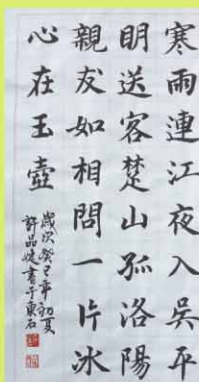 寒雨連江夜入吳平
明送客楚山孤洛陽
親友如相問一片冰
心在玉壺
歲次癸巳年初夏
許品婕書于東石